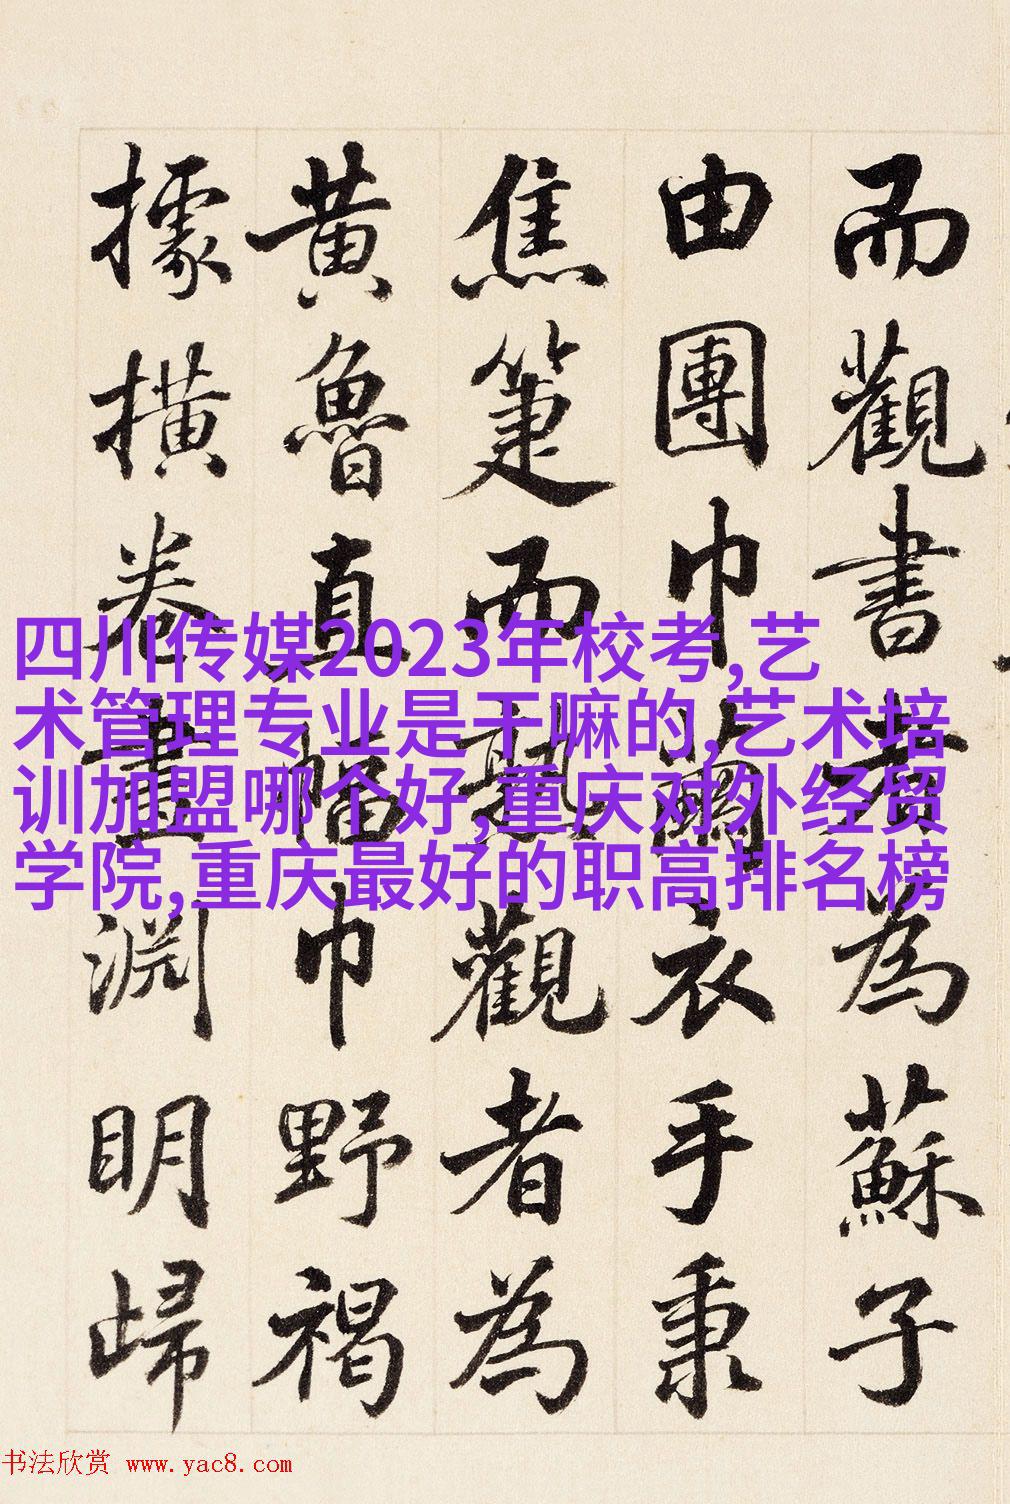 而觀書者為蘇子
由團巾繭衣手秉
焦箑而熟觀者為
黃魯直幅巾野褐
據撗卷畫淵明歸
四川传媒2023年校考,艺
术管理专业是干嘛的,艺术培
训加盟哪个好,重庆对外经贸
学院,重庆最好的职高排名榜
书法欣赏 www.yac8.com